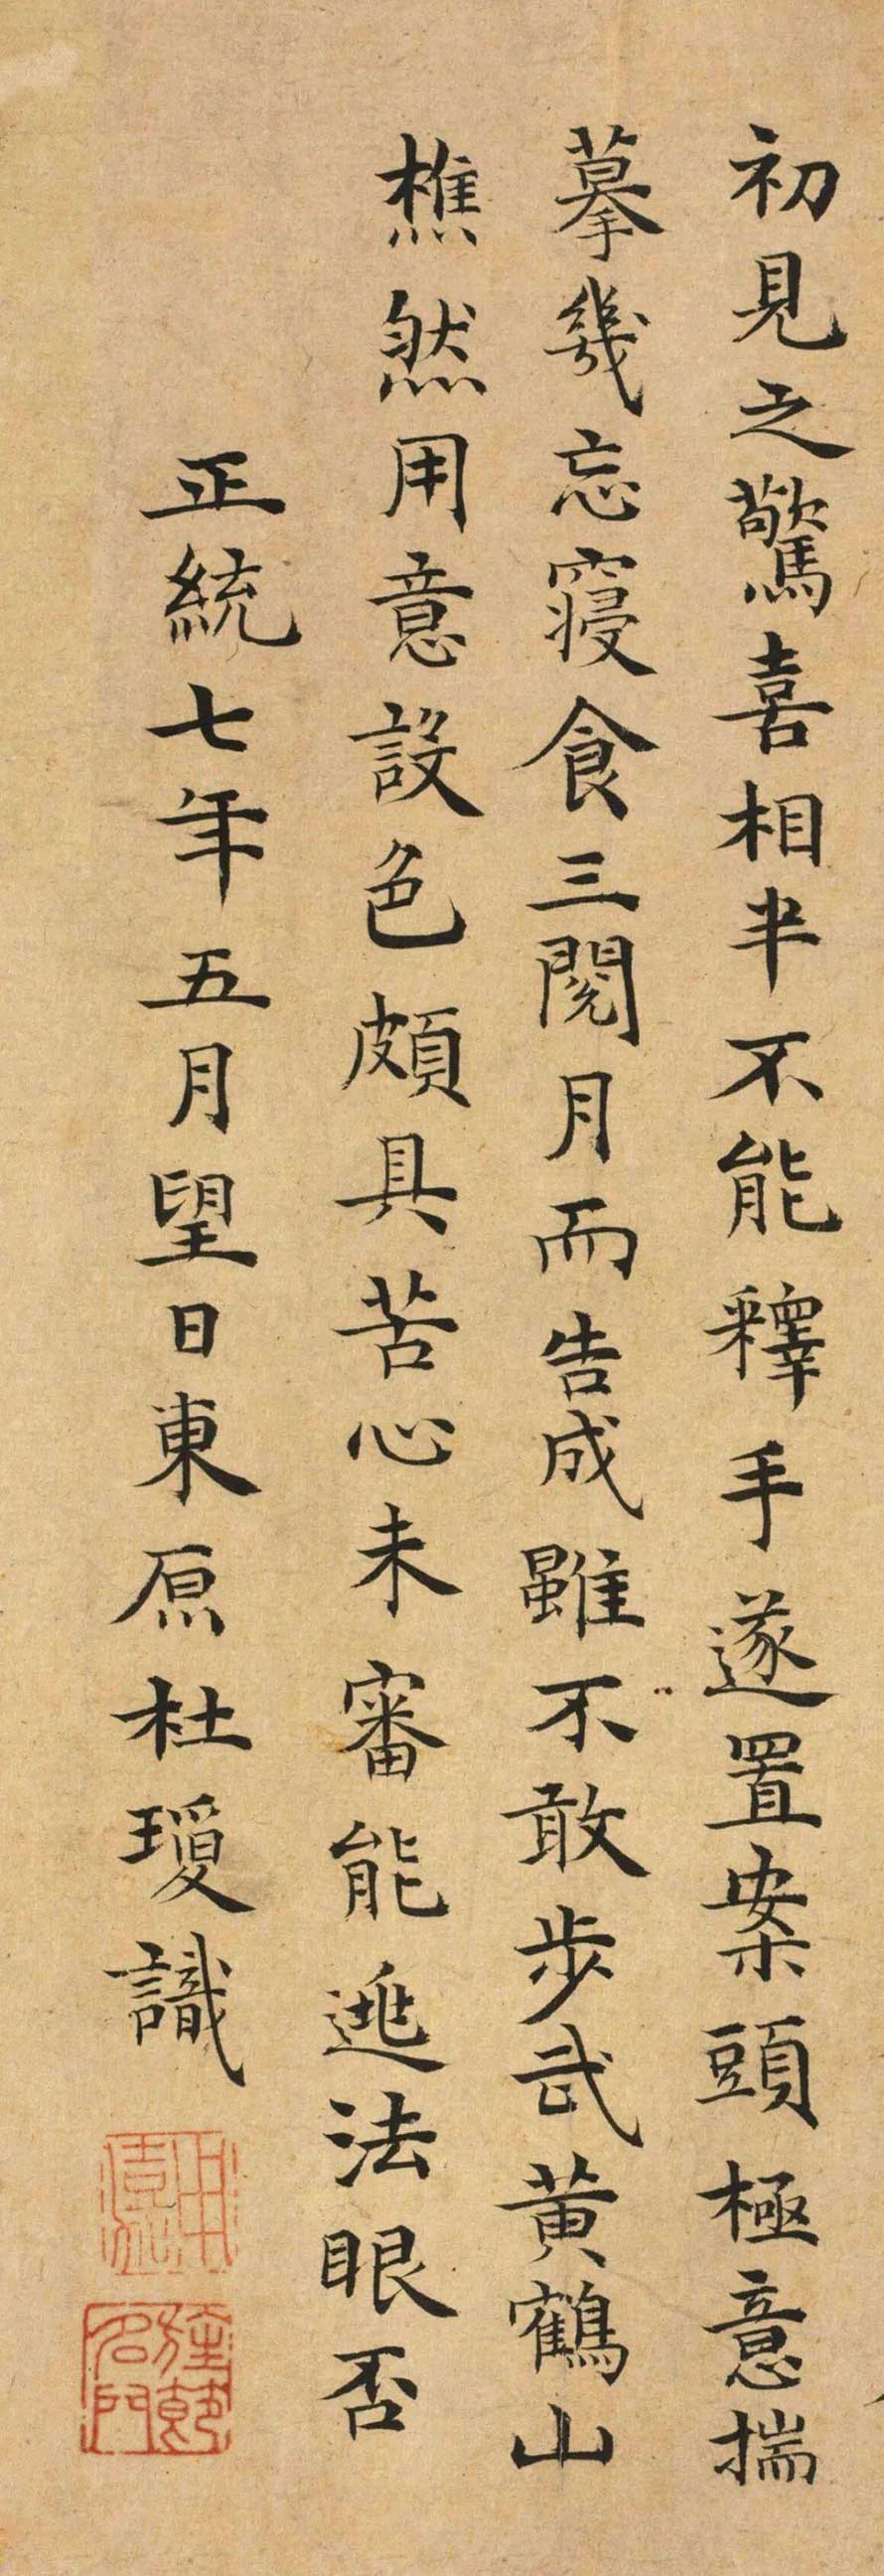 初見之驚喜相半不能釋手遂置案頭極意揣
摹幾忘寢食三閱月而告成雖不敢步武黃鶴山
樵然用意設色頗具苦心未審能逃法眼否
正統七年五月望日東原杜瓊識